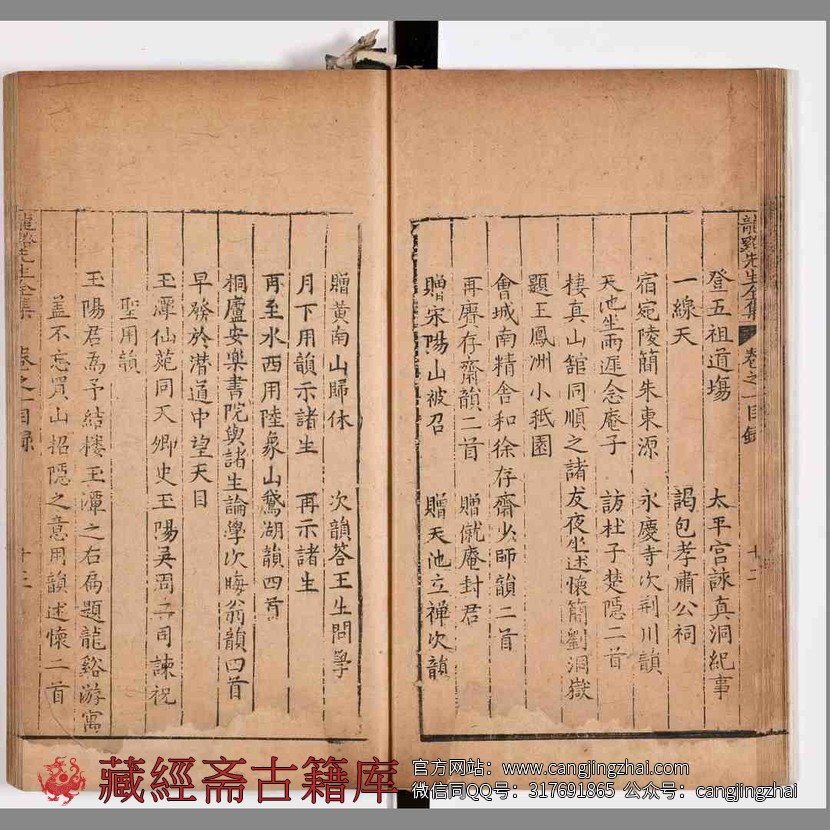 龍谿先生全集 卷之一目錄 十二
登五祖道塲 太平宮詠真洞紀事
一線天 謁包孝肅公祠
宿宛陵簡朱東源 永慶寺次荆川韻
天池坐雨遲念庵子 訪杜子楚隱二首
棲真山舘同順之諸友夜坐述懷簡劉洞嶽
題王鳳洲小祗園
會城南精舍和徐存齋少師韻二首
再賡存齋韻二首 贈僦庵封君
贈宋陽山被召 贈天池立禪次韻
贈黃南山歸休 次韻荅王生問學
月下用韻示諸生 再示諸生
再至水西用陸象山鵝湖韻四首
桐廬安樂書院與諸生論學次晦翁韻四首
早發於潛道中望天目
玉潭仙苑同天卿史玉陽吳周二司諫祝
聖用韻
玉陽君爲予結樓玉潭之右扁題龍谿游寓
盖不忘買山招隱之意用韻述懷二首
龍谿先生全集 卷之一目錄 十三
藏經斋古籍库
官方网站：www.cangjingzhai.com
微信同QQ号：317691865 公众号：cangjingzhai